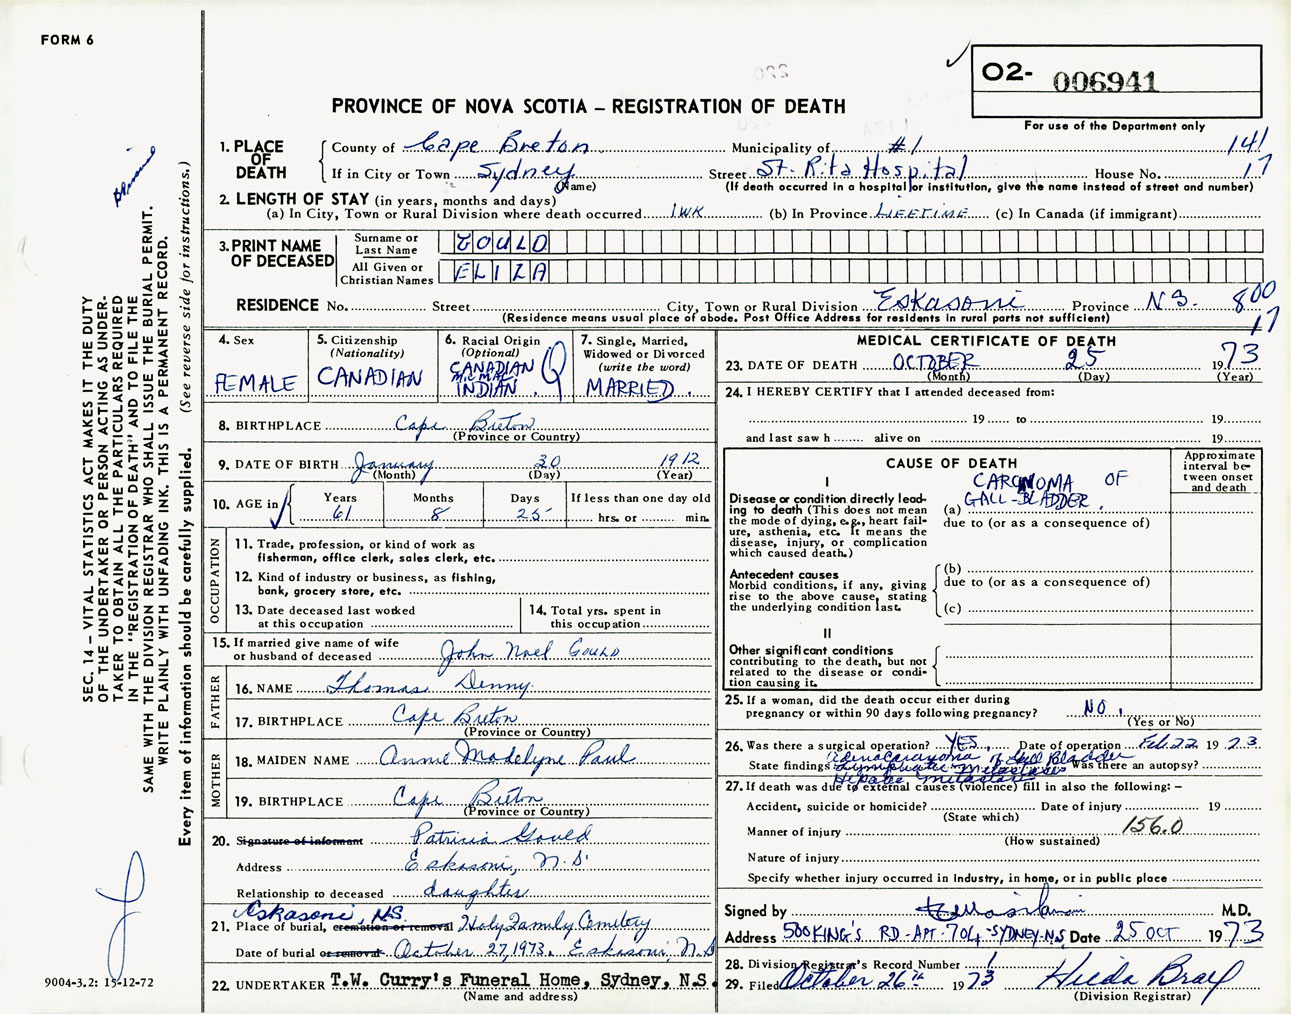 FORM 6
O2- 006941
For use of the Department only
PROVINCE OF NOVA SCOTIA — REGISTRATION OF DEATH
1. PLACE OF DEATH
County of Cape Breton Municipality of #1 141
If in City or Town Sydney (Name) Street St. Rita Hospital House No. 17
(If death occurred in a hospital or institution, give the name instead of street and number)
2. LENGTH OF STAY (in years, months and days)
(a) In City, Town or Rural Division where death occurred 1WK (b) In Province LIFETIME (c) In Canada (if immigrant)
3. PRINT NAME OF DECEASED
Surname or Last Name GOULD
All Given or Christian Names ELIZA
RESIDENCE No. Street City, Town or Rural Division Eskasoni Province N S. 800
(Residence means usual place of abode. Post Office Address for residents in rural parts not sufficient) 17
4. Sex
FEMALE
5. Citizenship
(Nationality)
CANADIAN
6. Racial Origin
(Optional)
CANADIAN
MICMAC
INDIAN.
7. Single, Married,
Widowed or Divorced
(write the word)
MARRIED.
8. BIRTHPLACE Cape Breton
(Province or Country)
9. DATE OF BIRTH January 30 1912
(Month) (Day) (Year)
10. AGE in Years Months Days If less than one day old
61 8 25 hrs. or min.
OCCUPATION
11. Trade, profession, or kind of work as
fisherman, office clerk, sales clerk, etc.
12. Kind of industry or business, as fishing,
bank, grocery store, etc.
13. Date deceased last worked
at this occupation
14. Total yrs. spent in
this occupation
15. If married give name of wife
or husband of deceased John Noel GOULD
FATHER
16. NAME Thomas Denny
17. BIRTHPLACE Cape Breton
(Province or Country)
MOTHER
18. MAIDEN NAME Annie Madelyne Paul
19. BIRTHPLACE Cape Breton
(Province or Country)
20. Signature of informant Patricia Gould
Address Eskasoni, N.S.
Relationship to deceased daughter
Eskasoni, N.S.
21. Place of burial, cremation or removal Holy Family Cemetery
Date of burial or removal October 27, 1973. Eskasoni, N.S
22. UNDERTAKER T.W. Curry's Funeral Home, Sydney, N.S.
(Name and address)
MEDICAL CERTIFICATE OF DEATH
23. DATE OF DEATH OCTOBER 25 1973
(Month) (Day) (Year)
24. I HEREBY CERTIFY that I attended deceased from:
19 to 19
and last saw h alive on 19
CAUSE OF DEATH
Approximate interval between onset and death
I
Disease or condition directly leading to death (This does not mean the mode of dying, e.g., heart failure, asthenia, etc. It means the disease, injury, or complication which caused death.)
CARCINOMA OF
(a) GALL-BLADDER.
due to (or as a consequence of)
Antecedent causes
Morbid conditions, if any, giving rise to the above cause, stating the underlying condition last.
(b)
due to (or as a consequence of)
(c)
II
Other significant conditions
contributing to the death, but not related to the disease or condition causing it.
25. If a woman, did the death occur either during
pregnancy or within 90 days following pregnancy? NO.
(Yes or No)
26. Was there a surgical operation? YES. Date of operation Feb. 22 1973.
State findings Adenocarcinoma of Gall Bladder Was there an autopsy?
Lymphatic metastasis
Hepatic metastasis
27. If death was due to external causes (violence) fill in also the following: —
Accident, suicide or homicide? Date of injury 19
(State which)
Manner of injury 156.0
(How sustained)
Nature of injury
Specify whether injury occurred in industry, in home, or in public place
Signed by M.D.
Address 500 KING'S RD - APT - 704 - SYDNEY - N.S Date 25 OCT 1973
28. Division Registrar's Record Number 1
29. Filed October 26th 1973 Hilda Bray
(Division Registrar)
SEC. 14 — VITAL STATISTICS ACT MAKES IT THE DUTY
OF THE UNDERTAKER OR PERSON ACTING AS UNDER-
TAKER TO OBTAIN ALL THE PARTICULARS REQUIRED
IN THE "REGISTRATION OF DEATH" AND TO FILE THE
SAME WITH THE DIVISION REGISTRAR WHO SHALL ISSUE THE BURIAL PERMIT.
WRITE PLAINLY WITH UNFADING INK. THIS IS A PERMANENT RECORD.
Every item of information should be carefully supplied. (See reverse side for instructions.)
9004-3.2: 15-12-72